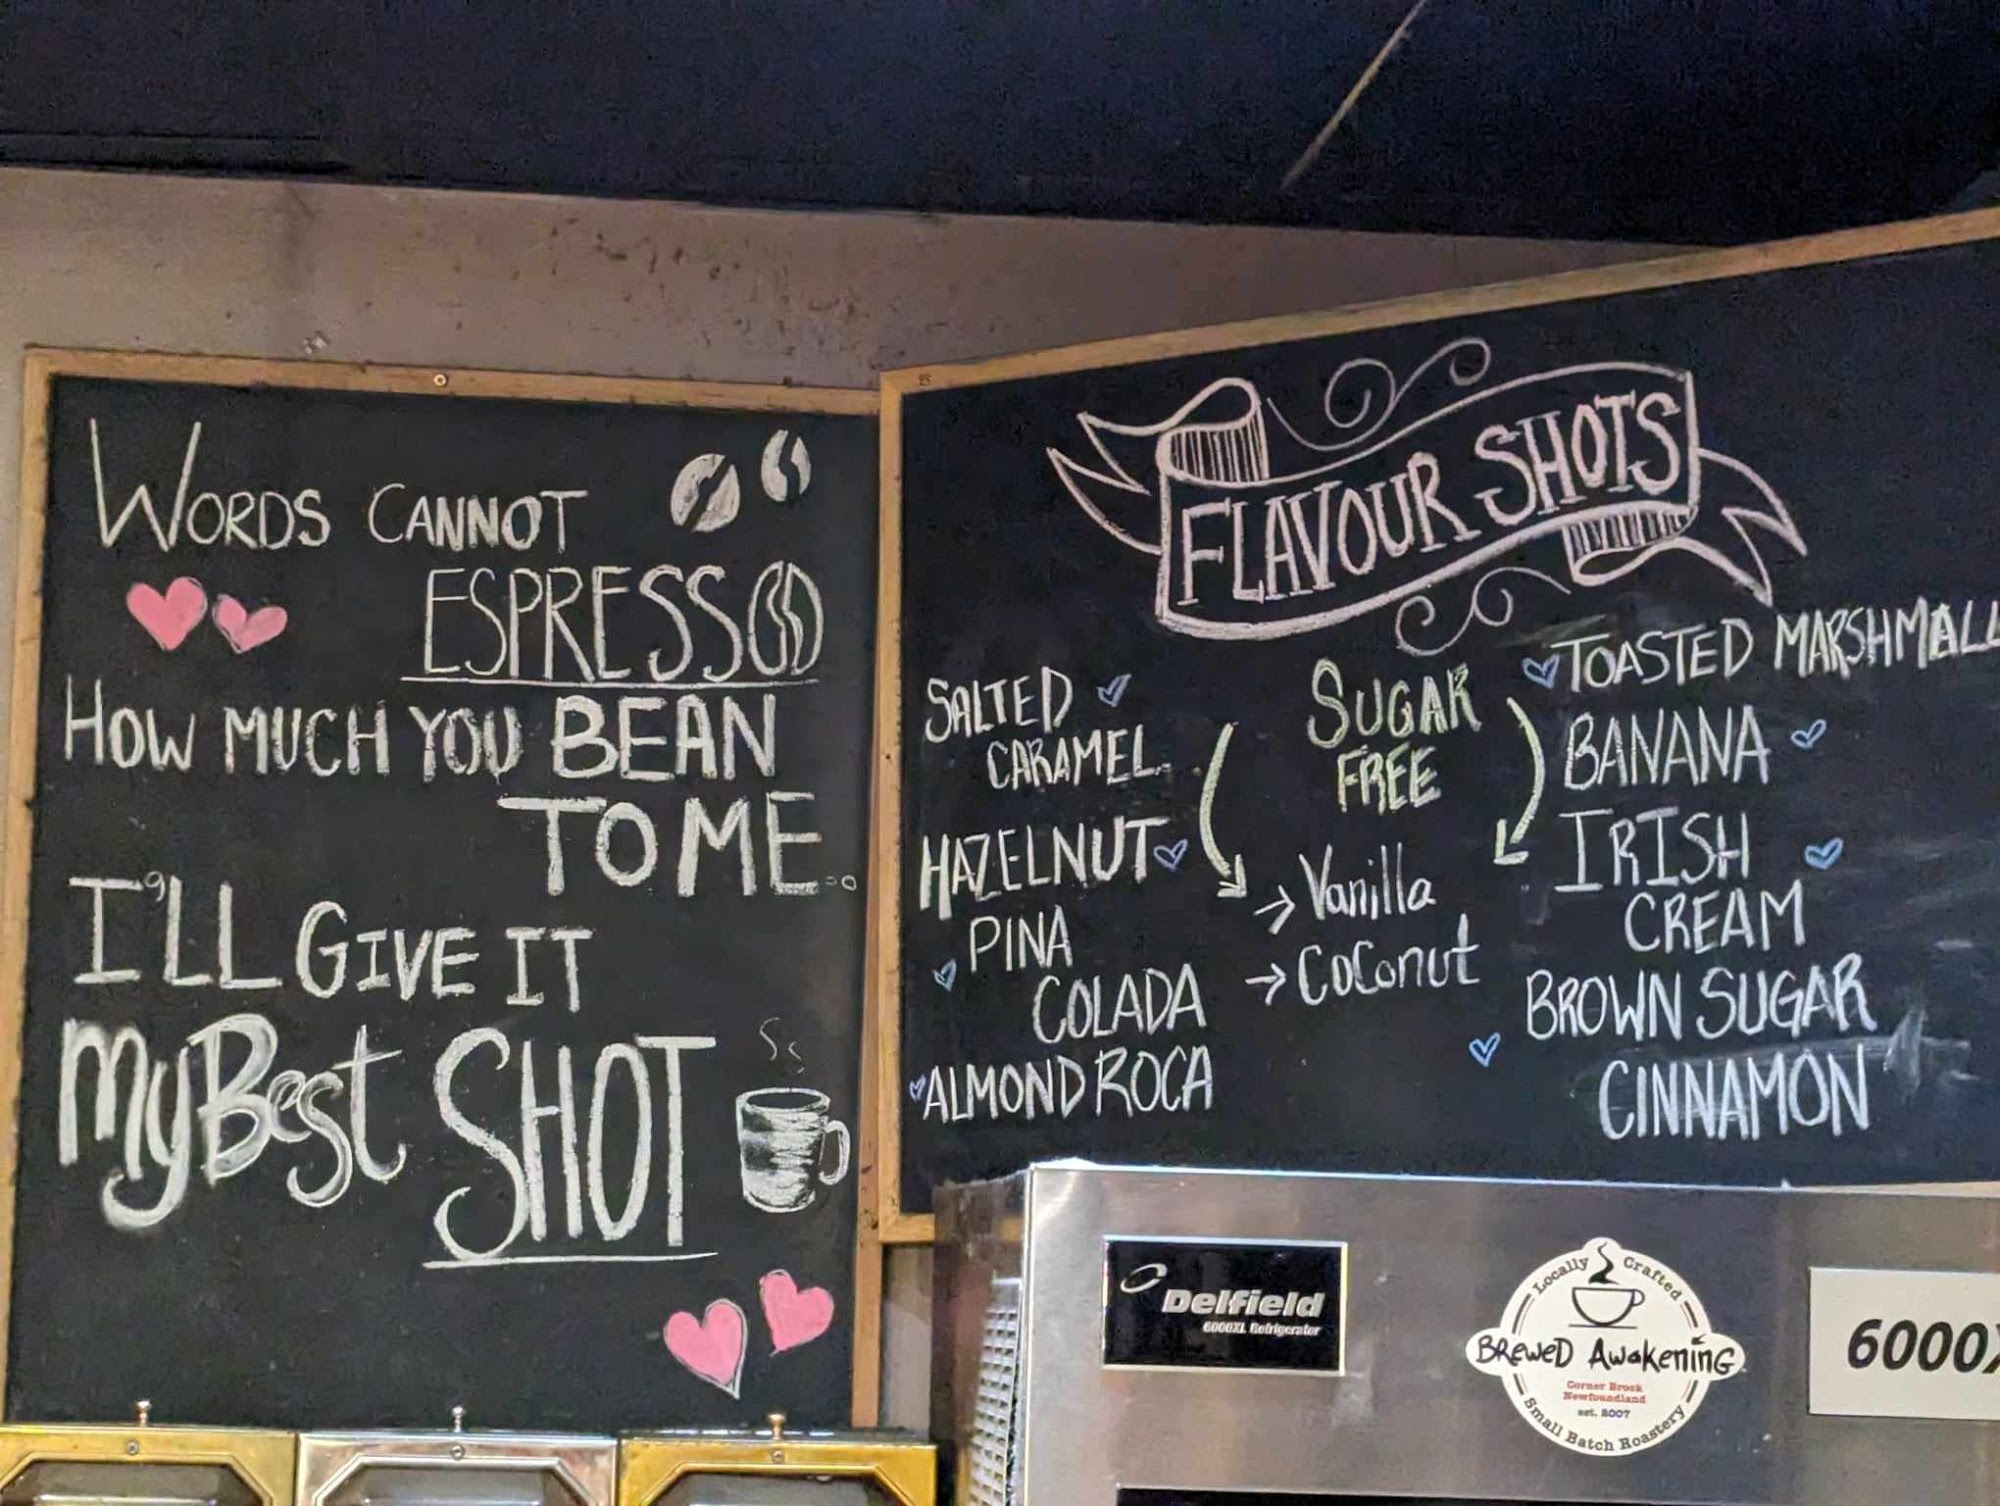 WORDS CANNOT
ESPRESSO
HOW MUCH YOU BEAN
TO ME...
I'LL GIVE IT
My Best SHOT
FLAVOUR SHOTS
SALTED
CARAMEL
HAZELNUT
PINA
COLADA
ALMOND ROCA
SUGAR
FREE
→ Vanilla
→ Coconut
TOASTED MARSHMALL
BANANA
IRISH
CREAM
BROWN SUGAR
CINNAMON
Delfield
6000XL Refrigerator
Locally Crafted
BREWED AWAKENING
Corner Brook
Newfoundland
est. 2007
Small Batch Roastery
6000X